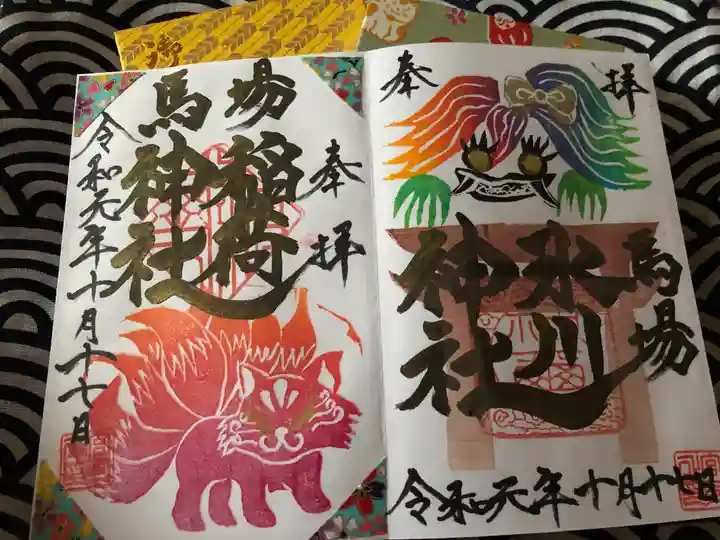 奉拝
馬場
氷川
神社
令和元年十月十七日
奉拝
馬場
稲荷
神社
令和元年十月十七日
御